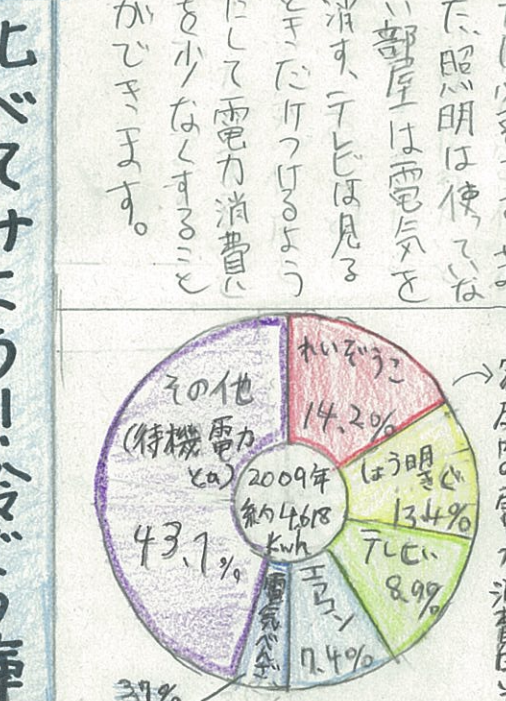 た、照明は使っていな
い部屋は電気を
消す、テレビは見る
ときだけつけるよう
にして電力消費
を少なくすること
ができます。
れいぞうこ
14.2%
しょう明きぐ
13.4%
テレビ
8.9%
エアコン
7.4%
電気べんざ
3.7%
その他
(待機電力
とか)
43.1%
2009年
約4618
Kwh